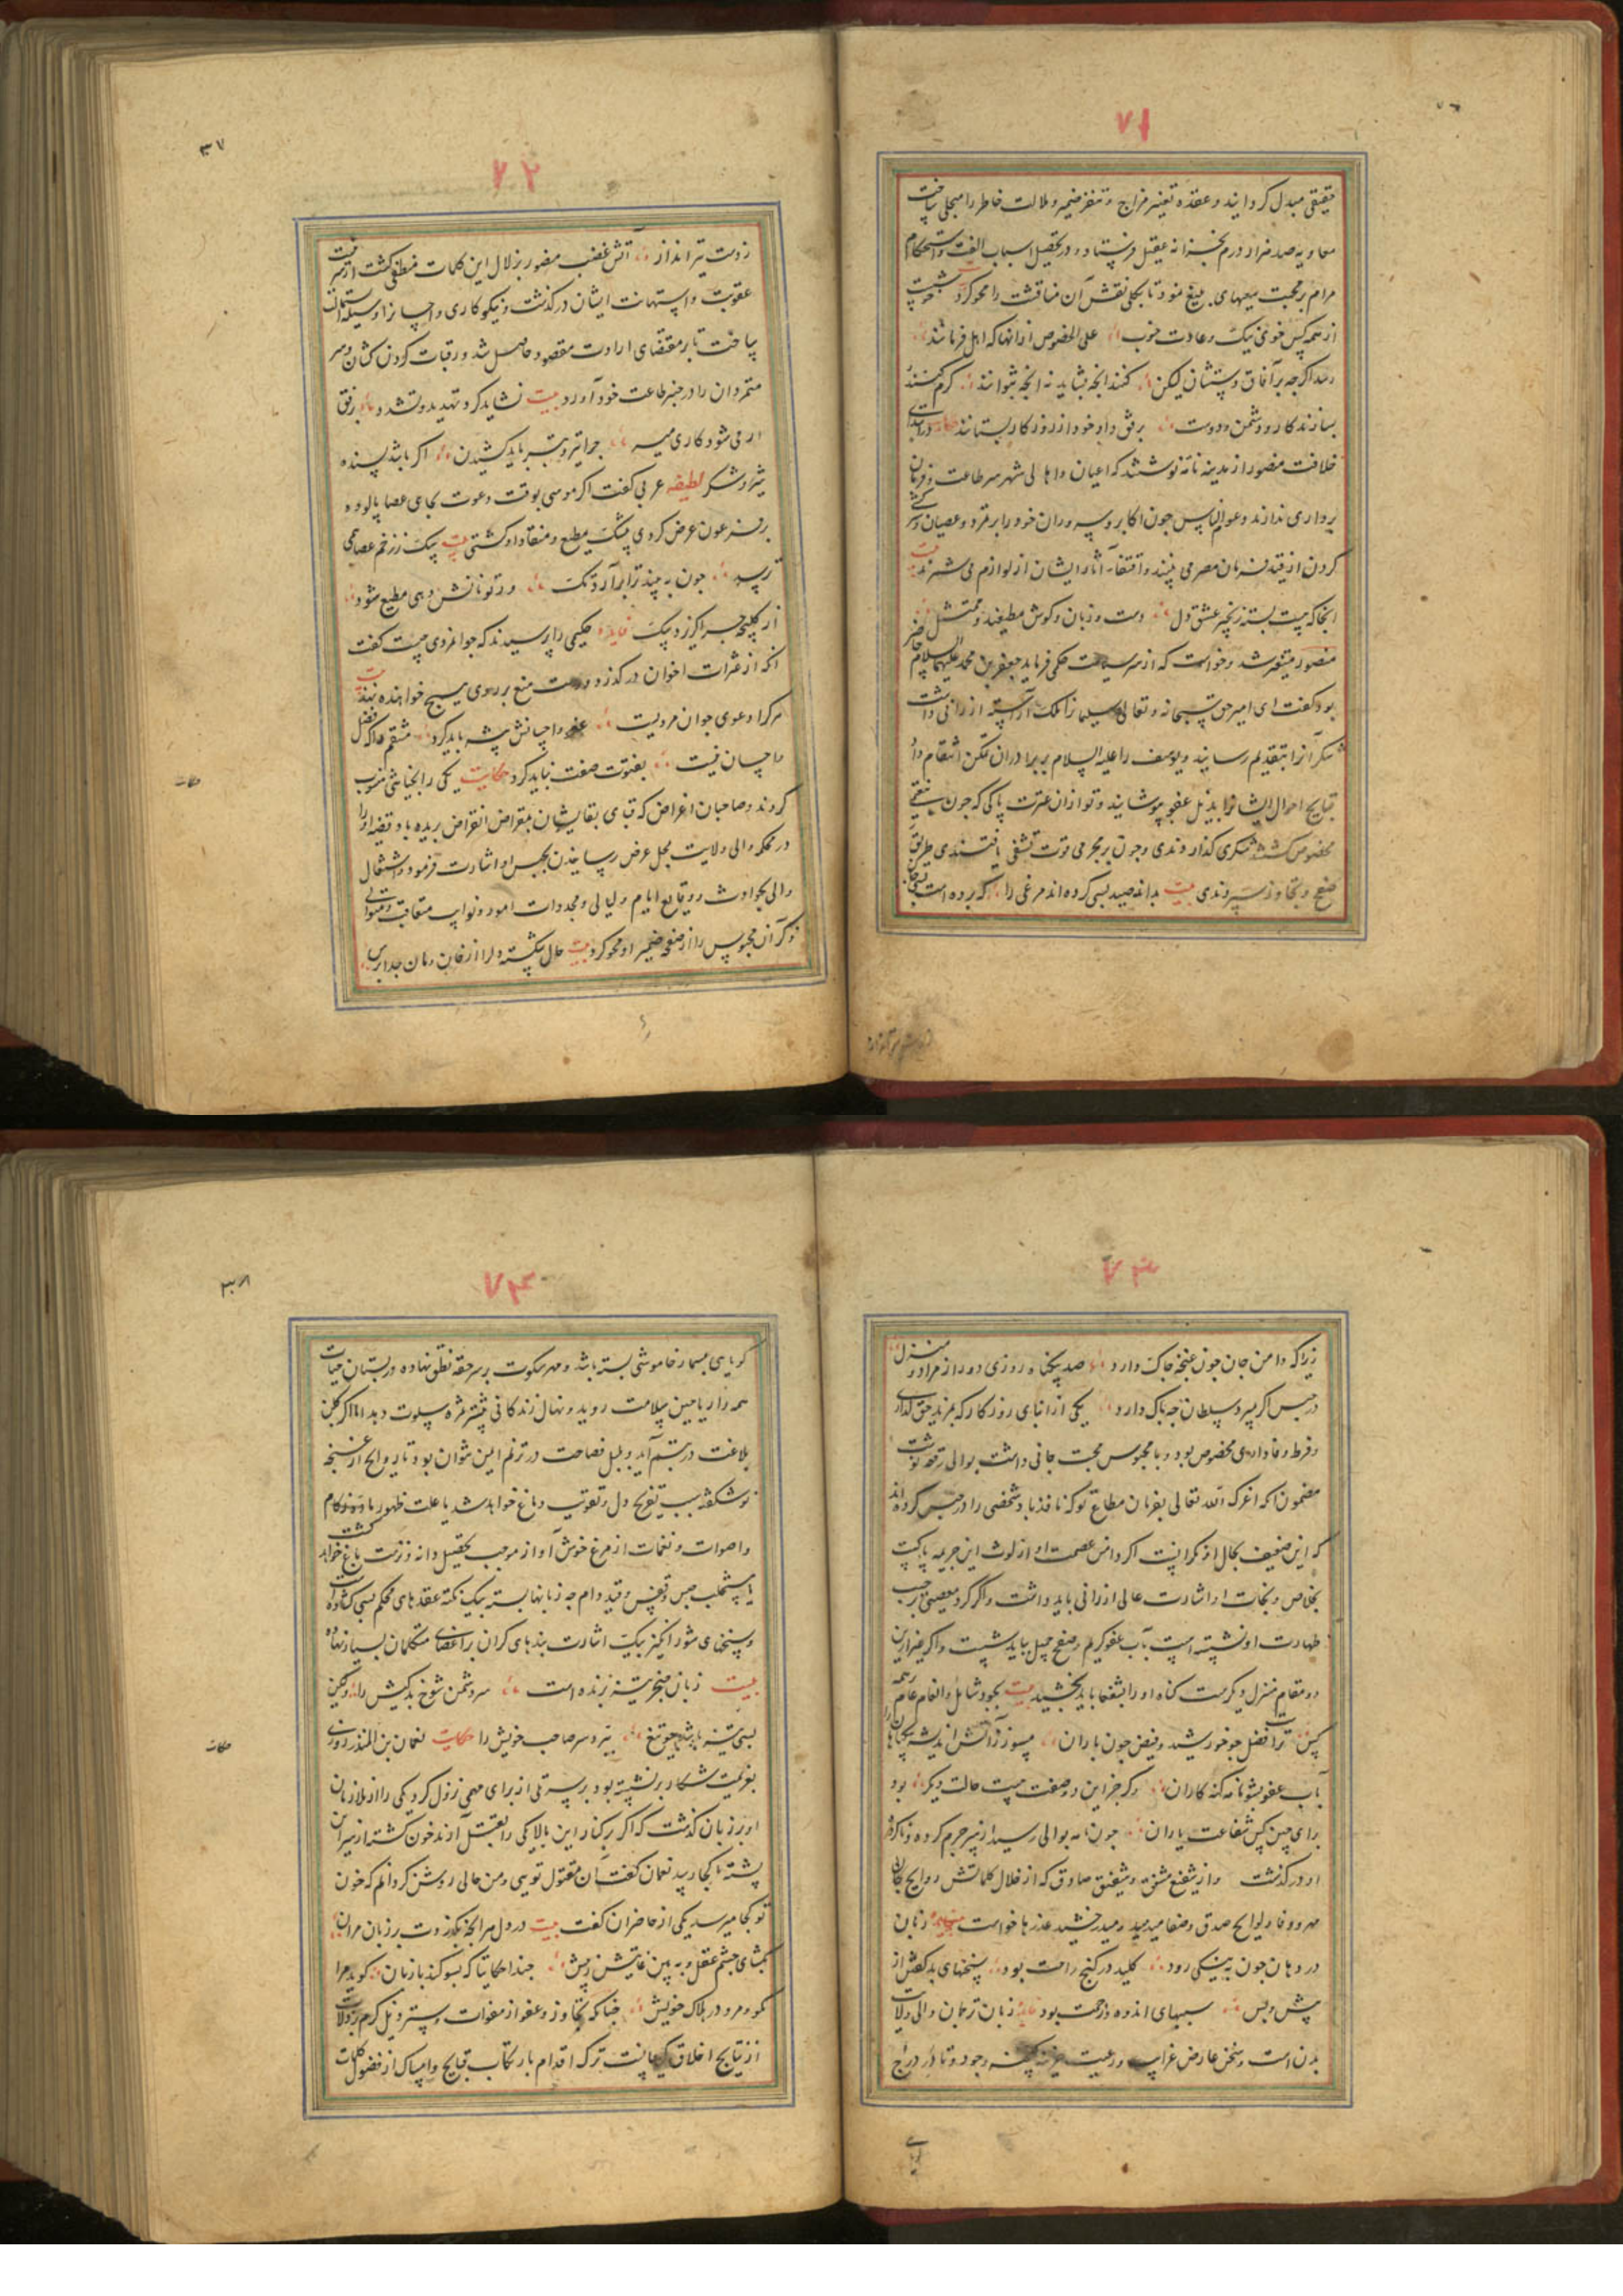 ۷۱
حقیقی مبدل کردانید و عقده تغییر مزاج و تنفر ضمیر و ملالت خاطر را منجلی ساخت
معاویه صد هزار درم بخزانه عقیل فرستاد و در تحصیل اسباب الفت و استحکام
مرام بر محبت سعیهای بلیغ نمود تا بکلی نقش آن مناقشت را محو کرد
از همه کس خوی نیک و عادت خوب علی الخصوص ازانها که اهل فرمانند
رسد اگرچه بر آفاق دستشان لیکن کنند انچه بشاید نه انچه بتوانند کرم کنند
بسازند کار دشمن و دوست برفق داد خود از روزکار بستانند حکایت در ابتدای
خلافت منصور از مدینه نامه نوشتند که اعیان و اهالی شهر سر طاعت و فرمان
برداری ندارند و عوام الناس چون اکابر و سروران خود را بر تمرد و عصیان و سرکشی
کردن از قید فرمان مصر می بینند و اقتفاء آثار ایشان از لوازم می شمرند بیت
انجا که بست بسته زنجیر عشق دل دست و زبان و کوش مطیعند و ممتثل
منصور متغیر شد و خواست که از سر سیاست حکمی فرماید جعفر بن محمد علیهما السلام حاضر
بود گفت ای امیر حق سبحانه و تعالی سلیمانرا ملک آراسته ارزانی داشت
شکر آنرا بتقدیم رسانید و یوسف را علیه السلام بر برادران تمکن انتقام داد
قبایح احوال ایشانرا بذیل عفو بپوشانید و تو ازان عترت پاکی که چون بنعمتی
مخصوص کشتند شکری کذاردندی و چون بر مجرمی قوت تشفی یافتندی طریق
صفح و تجاوز سپردندی بیت بدانه صید بسی کرده اند مرغی را که برده است
۳۷
۷۲
ز دست تیرانداز آتش غضب منصور بزلال این کلمات منطفی کشت از سر
عقوبت و استهانت ایشان درکذشت و نیکوکاری و احسانرا وسیله استمالت
ساخت تا بر مقتضای ارادت مقصود حاصل شد و رقبات کردن کشان و سر
متمردان را در چنبر طاعت خود آورد بیت نشاید کرد تهدید و تشدد برفق
ار می شود کاری میسر چرا تیر و تبر باید کشیدن اکر باشد بسنده
شیر و شکر لطیفه عربی کفت اکر موسی بوقت دعوت بجای عصا پالوده
بر فرعون عرض کردی بیشک مطیع و منقاد او کشتی بیت سک ز زخم عصا همی
ترسد چون به بیند ترا برآرد تک ور تو نانش دهی مطیع شود
از کلیچه چرا کزد سک فایده حکیمی را پرسیدند که جوانمردی چیست کفت
انکه از عثرات اخوان درکذرد و دست منع بر روی هیچ خواهنده ننهد بیت
هرکرا دعوی جوان مردیست عفو و احسانش پیشه باید کرد منتقم را که فضل
و احسان نیست بفتوت صفت نباید کرد حکایت یکی را بخیانتی منسوب
کردند و صاحبان اغراض که قبای بقایشان بمقراض انقراض بریده باد قصه او را
در محکمه والی ولایت بمحل عرض رسانیدند بحبس او اشارت فرمود و اشتغال
والی بحوادث و وقایع ایام و لیالی و مجددات امور و نوایب متعاقب و متوالی
ذکر آن محبوس را از صفحه ضمیر او محو کرد بیت حال شکسته دلرا از خان و مان جدا پرس
حکایت
۷۳
زیرا که دامن جان چون غنچه چاک دارد صد بیکناه روزی دور از مراد و منزل
در حبس اکر بمیرد سلطان چه باک دارد یکی از ابنای روزکار که بمزید حق کذاری
و فرط وفاداری مخصوص بود و با محبوس محبت جانی داشت بوالی رقعه نوشت
مضمون انکه اعزک الله تعالی بفرمان مطاع تو که نافذ باد شخصی را در حبس کرده اند
که این ضعیف بحال او نکرانست اکر دامن عصمت او از لوث این جریمه پاکست
بخلاص و نجات او اشارت عالی ارزانی باید داشت و اکر کرد معصیتی بر جیب
طهارت او نشسته است بآب عفو کریم و صفح جمیل بباید شست و اکر غیر ازین
دو مقام منزل دیکرست کناه او را بشفعا باید بخشید بیت بجود شامل و انعام عام و رحمه
بس ترا فضل چو خورشید و فیض چون باران مسوز ز آتش اندیشه بیکناهان را
بآب عفو بشو نامه کنه کاران و کر جز این دو صفت هست حالت دیکر بود
برای چنین کس شفاعت یاران چون نامه بوالی رسید از سر جرم کرده و ناکرده
او درکذشت و از شفیع مشفق و شفیق صادق که از خلال کلماتش روایح
مهر و وفا و لوایح صدق و صفا میدمید و میدرخشید عذرها خواست زبان
در دهان چون به نیکی رود کلید در کنج راحت بود سخنهای بد کفتن از
پیش و پس سببهای اندوه و زحمت بود زبان ترجمان والی ولایت
بدن است و سخن عارض غرایب ودیعت خزینه سینه وجود و تا در درج
۳۸
۷۴
کویایی بمسمار خاموشی بسته باشد و مهر سکوت بر سر حقه نطق نهاده در بستان حیات
همه زار یاحین سلامت روید و نهال زندکانی بیشتر ثمره سلوت دهد اما اکر کلبن
بلاغت در تبسم آید و بلبل فصاحت در ترنم ایمن نتوان بود تا روایح از غنچه
نوشکفته سبب تفریح دل و تقویت دماغ خواهد شد یا علت ظهور بادهٔ زکام
و اصوات و نغمات از مرغ خوش آواز موجب تحصیل دانه و زینت باغ خواهد کشت
یا مستجلب حبس و قفس و قید دام چه زبانها بسته بیک نکته عقدهای محکم بسی کشاده است
و سخنهای شور انکیز بیک اشارت بندهای کران بر اعضای متکلمان بسیار نهاده
بیت زبان خنجر تیز برنده است سر دشمن شوخ بدکیش را ولیکن
بسی تیز باشد چو تیغ ببرد سر صاحب خویش را حکایت نعمان بن المنذر روزی
بعزیمت شکار برنشسته بود بر سر تلی از برای مهمی نزول کرد یکی را از ملازمان
او بر زبان کذشت که اکر بر کنار این بالا یکی را بقتل آرند خون کشته از سر این
پشته تا کجا رسد نعمان کفت آن مقتول تویی و من حالی روشن کردانم که خون
تو کجا میرسد یکی از حاضران کفت بیت در دل هر انچه بکذردت بر زبان مران
بکشای چشم عقل و به بین عاقبتش ز پیش چند احکایتا که بسوکند با زبان کوید مرا
مکو و مرو در هلاک خویش چنانکه تجاوز و عفو از هفوات و ستر و نیل کرم بر زلات
از نتایج اخلاق کرامست ترک اقدام بارتکاب قبایح و امساک از فضول کلمات
حکایت